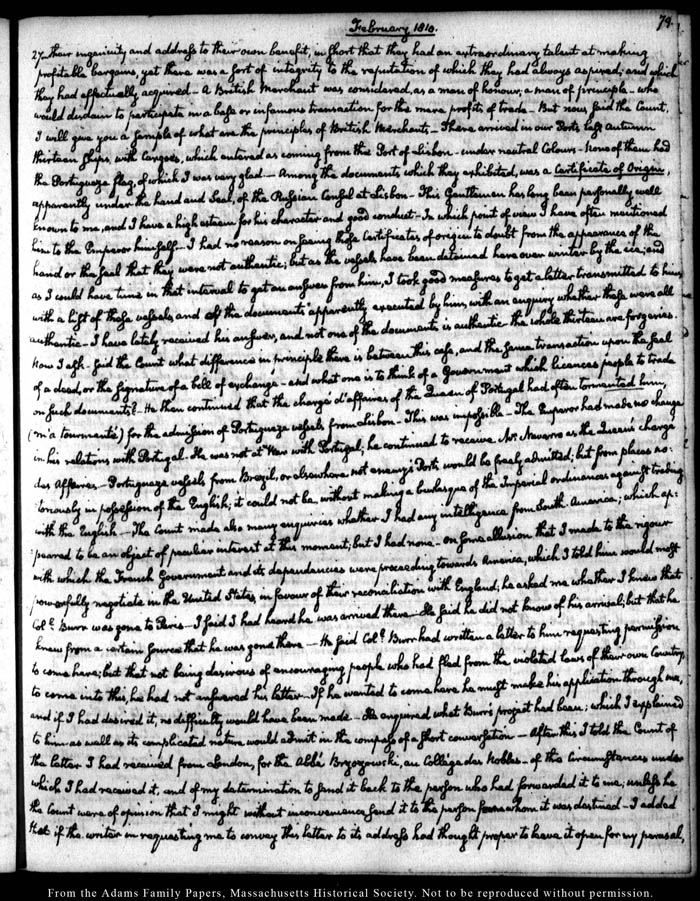 February 1810.
79.
27. their ingenuity and address to their own benefit, in short that they had an extraordinary talent at making
profitable bargains, yet there was a sort of integrity to the reputation of which they had always aspired, and which
they had effectually acquired— A British Merchant was considered, as a man of honour, a man of principle— who
would disdain to participate in a base or infamous transaction for the mere profits of trade— But now said the Count,
I will give you a sample of what are the principles of British Merchants— There arrived in our Ports last Autumn
thirteen ships, with Cargoes, which entered as coming from the Port of Lisbon— under neutral Colours— None of them had
the Portugueze flag, of which I was very glad— Among the documents which they exhibited, was a Certificate of Origin,
apparently under the hand and Seal, of the Russian Consul at Lisbon— This Gentleman has long been personally well
known to me, and I have a high esteem for his character and good conduct— In which point of view I have often mentioned
him to the Emperor himself— I had no reason on seeing those Certificates of origin to doubt from the appearance of the
hand or the seal that they were not authentic; but as the vessels have been detained here over winter by the ice; and
as I could have time in that interval to get an answer from him, I took good measures to get a letter transmitted to him
with a list of these vessels, and of the documents apparently executed by him, with an enquiry whether these were all
authentic— I have lately received his answer, and not one of the documents is authentic the whole thirteen are forgeries.
Now I ask— said the Count what difference in principle there is between this case, and the same transaction upon the seal
of a deed, or the signature of a bill of exchange— and what one is to think of a Government which licences people to trade
on such documents?— He then continued that the chargé d'affaires of the Queen of Portugal had often tormented him,
(m'a tourmenté) for the admission of Portugueze vessels from Lisbon— This was impossible— The Emperor had made no change
in his relations with Portugal— He was not at War with Portugal; he continued to receive Mr. Navarro as the Queen's chargé
des Affaires— Portugueze vessels from Brazil, or elsewhere not enemy's Ports would be freely admitted; but from places no-
toriously in possession of the English, it could not be, without making a burlesque of the Imperial ordinances against trading
with the English— The Count made also many enquiries whether I had any intelligence from South America; which ap-
peared to be an object of peculiar interest at this moment; but I had none— On some allusion that I made to the rigour
with which the French Government and its dependancies were proceeding towards America, which I told him would most
powerfully negotiate in the United States, in favour of their reconciliation with England, he asked me whether I knew that
Coll. Burr was gone to Paris— I said I had heard he was arrived there— He said he did not know of his arrival; but that he
knew from a certain source that he was gone there— He said Coll. Burr had written a letter to him requesting permission
to come here; but that not being desirous of encouraging people who had fled from the violated laws of their own Country,
to come into this, he had not answered his letter— If he wanted to come here he must make his application through me,
and if I had desired it, no difficulty would have been made— He enquired what Burr's project had been; which I explained
to him as well as its complicated nature would admit in the compass of a short conversation— After this I told the Count of
the letter I had received from London, for the Abbé Brzozowski, au Collège des Nobles— of the Circumstances under
which I had received it, and of my determination to send it back to the person who had forwarded it to me; unless he
the Count were of opinion that I might without inconvenience send it to the person for whom it was destined— I added
that if the writer in requesting me to convey this letter to its address had thought proper to leave it open for my perusal,
From the Adams Family Papers, Massachusetts Historical Society. Not to be reproduced without permission.